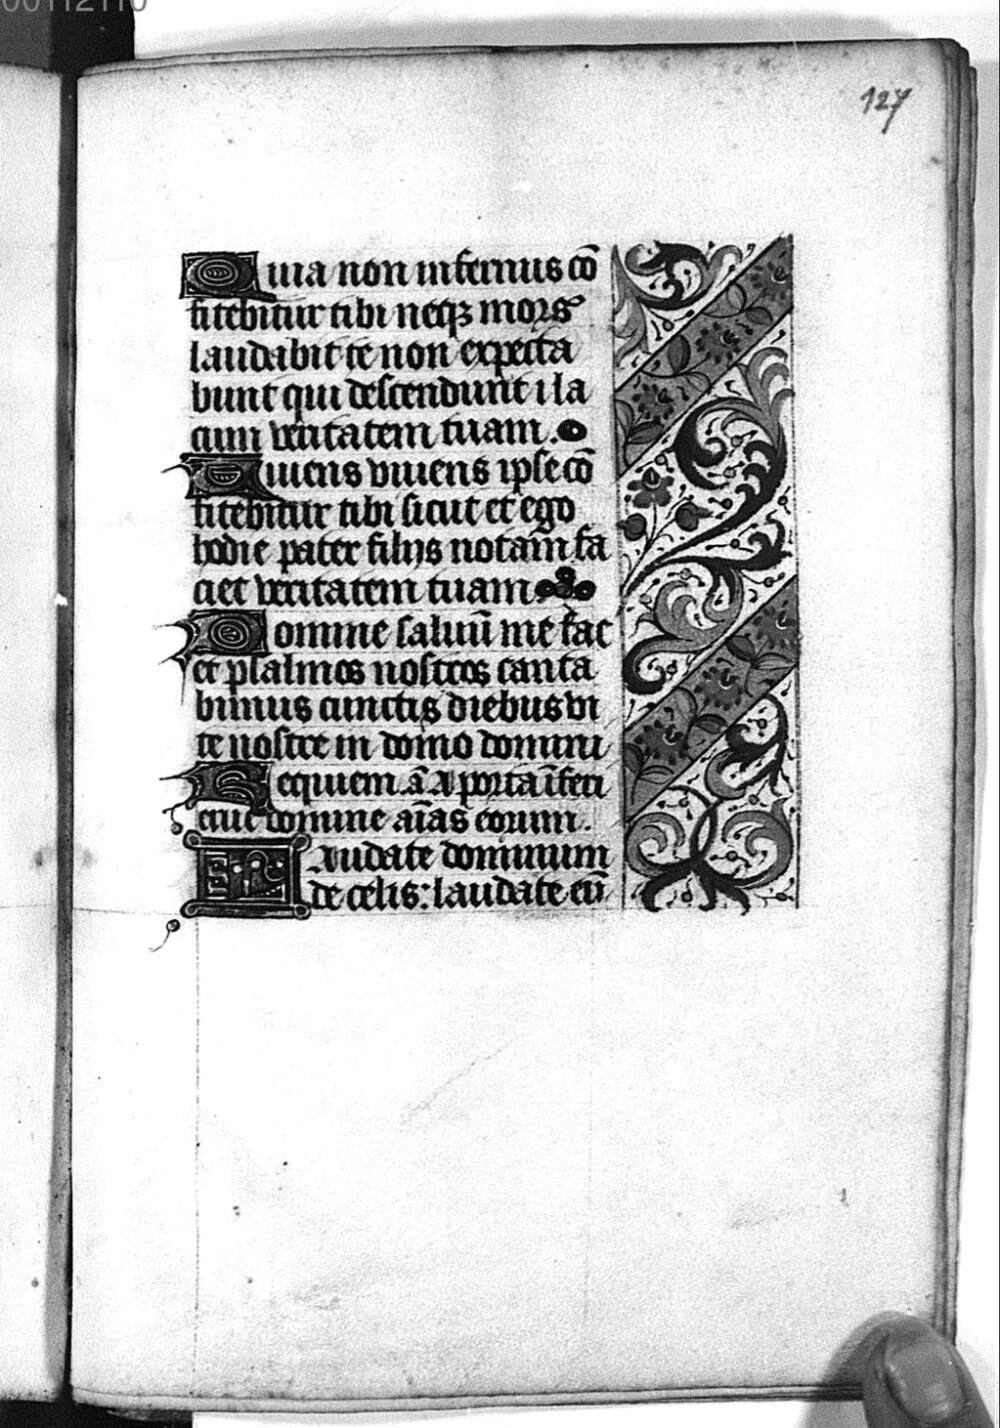 00112110
127
Quia non infernus cō
fitebitur tibi neqꝫ mors
laudabit te non expecta
bunt qui descendunt ī la
cum veritatem tuam.
Viuens viuens ipse cō
fitebitur tibi sicut et ego
hodie pater filijs notam fa
ciet veritatem tuam
Domine saluū me fac
et psalmos nostros canta
bimus cunctis diebus vi
te nostre in domo domini
Requiem. ā A porta īferi
erue domine aīas eorum.
Laudate dominum
de celis: laudate eū